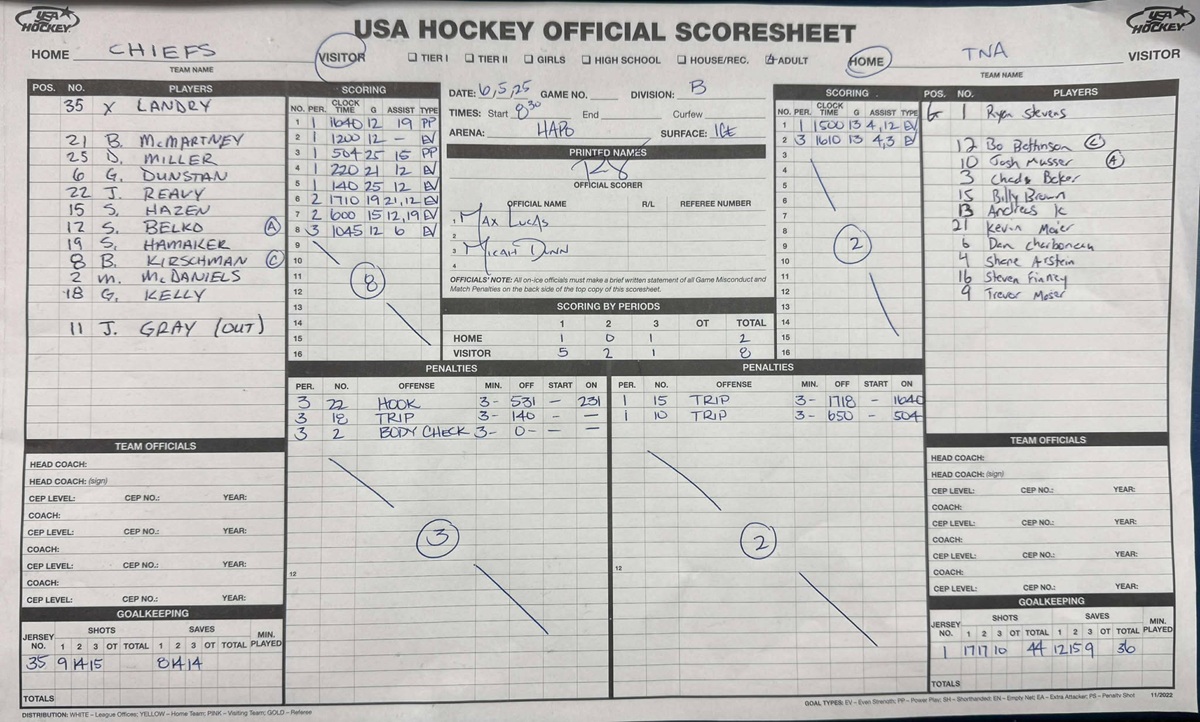 USA HOCKEY
USA HOCKEY OFFICIAL SCORESHEET
USA HOCKEY
HOME CHIEFS VISITOR ☐ TIER I ☐ TIER II ☐ GIRLS ☐ HIGH SCHOOL ☐ HOUSE/REC. ☑ ADULT HOME TNA VISITOR
TEAM NAME TEAM NAME
POS. NO. PLAYERS
35 X LANDRY
21 B. McMARTNEY
25 D. MILLER
6 G. DUNSTAN
22 J. REAVY
15 S. HAZEN
12 S. BELKO (A)
19 S. HAMAKER
8 B. KIRSCHMAN (C)
2 M. McDANIELS
18 G. KELLY
11 J. GRAY (OUT)
SCORING
NO. PER. CLOCK TIME G ASSIST TYPE
1 1 1640 12 19 PP
2 1 1200 12 - EV
3 1 504 25 15 PP
4 1 220 21 12 EV
5 1 140 25 12 EV
6 2 1710 19 21,12 EV
7 2 600 15 12,19 EV
8 3 1045 12 6 EV
9
10
11
12
13
14
15
16
8
DATE: 6,5,25 GAME NO. DIVISION: B
TIMES: Start 8:30 End Curfew
ARENA: HAPO SURFACE: ICE
PRINTED NAMES
OFFICIAL SCORER
OFFICIAL NAME R/L REFEREE NUMBER
1 MAX LUCAS
2
3 MICAH DUNN
4
OFFICIALS' NOTE: All on-ice officials must make a brief written statement of all Game Misconduct and
Match Penalties on the back side of the top copy of this scoresheet.
SCORING BY PERIODS
1 2 3 OT TOTAL
HOME 1 0 1 2
VISITOR 5 2 1 8
SCORING
NO. PER. CLOCK TIME G ASSIST TYPE
1 1 1500 13 4,12 EV
2 3 1610 13 4,3 EV
3
4
5
6
7
8
9
10
11
12
13
14
15
16
2
POS. NO. PLAYERS
G 1 Ryen Stevens
12 Bo Bethinson (C)
10 Josh Musser (A)
3 Chado Baker
15 Billy Brown
13 Andreas K
21 Kevin Maier
6 Dan Charboneau
4 Shane Arstein
16 Steven Finney
9 Trevor Moser
PENALTIES
PER. NO. OFFENSE MIN. OFF START ON
3 22 HOOK 3- 531 - 231
3 18 TRIP 3- 140 - -
3 2 BODY CHECK 3- 0- - -
3
12
PENALTIES
PER. NO. OFFENSE MIN. OFF START ON
1 15 TRIP 3- 1718 - 1640
1 10 TRIP 3- 650 - 504
2
12
TEAM OFFICIALS
HEAD COACH:
HEAD COACH: (sign)
CEP LEVEL: CEP NO.: YEAR:
COACH:
CEP LEVEL: CEP NO.: YEAR:
COACH:
CEP LEVEL: CEP NO.: YEAR:
COACH:
CEP LEVEL: CEP NO.: YEAR:
GOALKEEPING
JERSEY NO. SHOTS SAVES MIN. PLAYED
1 2 3 OT TOTAL 1 2 3 OT TOTAL
35 9 14 15 8 14 14
TOTALS
TEAM OFFICIALS
HEAD COACH:
HEAD COACH: (sign)
CEP LEVEL: CEP NO.: YEAR:
COACH:
CEP LEVEL: CEP NO.: YEAR:
COACH:
CEP LEVEL: CEP NO.: YEAR:
COACH:
CEP LEVEL: CEP NO.: YEAR:
GOALKEEPING
JERSEY NO. SHOTS SAVES MIN. PLAYED
1 2 3 OT TOTAL 1 2 3 OT TOTAL
1 17 17 10 44 12 15 9 36
TOTALS
DISTRIBUTION: WHITE – League Offices; YELLOW – Home Team; PINK – Visiting Team; GOLD – Referee
GOAL TYPES: EV – Even Strength; PP – Power Play; SH – Shorthanded; EN – Empty Net; EA – Extra Attacker; PS – Penalty Shot 11/2022